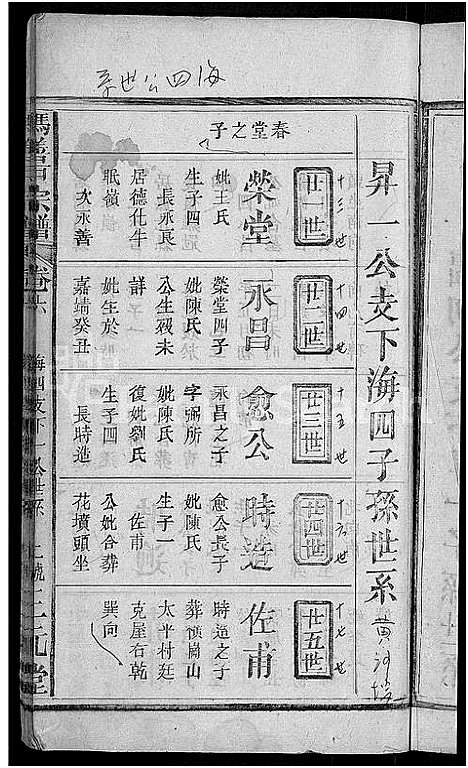 系世公四海
昇一公支下海四子孫世系
黄河
十三世
廿一世
春堂之子
榮堂
妣王氏
生子四
長永良
居德化牛
眠嶺
次永善
十四世
廿二世
永昌
榮堂四子
妣陳氏
公生歿未
詳
妣生於
嘉靖癸丑
十五世
廿三世
愈公
永昌之子
字弼所
妣陳氏
復妣劉氏
生子四
長時造
十六世
廿四世
時造
愈公長子
妣陳氏
生子一
佐甫
公妣合葬
花墳頭坐
十七世
廿五世
佐甫
時造之子
葬橫崗山
太平村廷
克屋右乾
巽向
宗譜
卷六
海四支下一公世系
三元堂